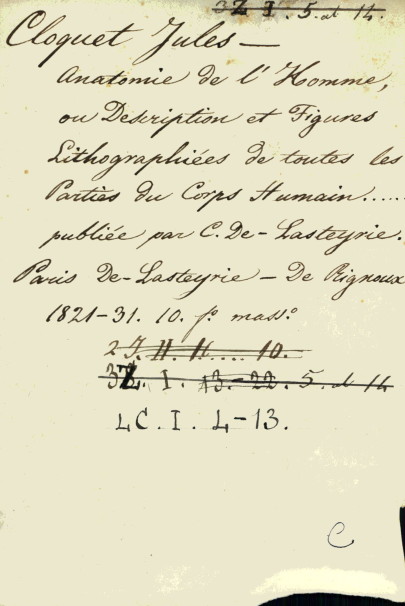 3Z I. 5. al 14.
Cloquet Jules —
Anatomie de l'Homme,
ou Description et Figures
Lithographiées de toutes les
Parties du Corps Humain......
publiée par C. De-Lasteyrie.
Paris De-Lasteyrie — De Rignoux
1821-31. 10. fo. masso.
2 J. H. H.... 10.
3Z. I. 13.-22. 5. al 14
LC. I. 4-13.
C